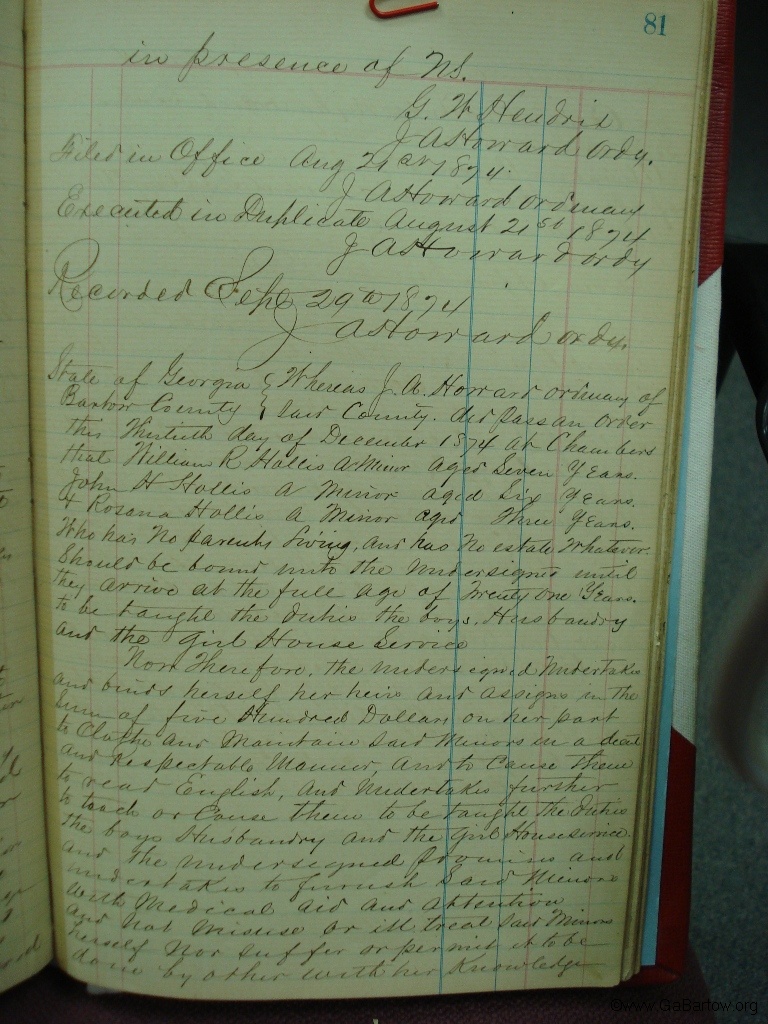 81
in presence of us.
G. W Hendrix
J A Howard Ordy.
Filed in Office Aug 21st 1874.
J A Howard Ordinary
Executed in Duplicate August 21st 1874
J A Howard Ordy
Recorded Sept 29th 1874
J A Howard Ordy.
State of Georgia { Whereas J. A. Howard Ordinary of
Bartow County { Said County. did pass an Order
this Thirtieth day of December 1874 at Chambers
that William R Hollis a Minor aged Seven Years.
John H Hollis a Minor aged Six Years.
& Rosana Hollis a Minor aged Three Years.
Who has no parents living, and has no estate Whatever.
Should be bound unto the undersigned until
they arrive at the full age of Twenty One Years.
to be taught the duties the boys. Husbandry
and the girl House Service
Now Therefore, the undersigned undertakes
and binds herself her heirs and assigns in the
Sum of five Hundred Dollars on her part
to Clothe and Maintain Said Minors in a decent
and Respectable Manner, and to Cause them
to read English, and undertakes further
to teach or Cause them to be taught the duties
the boys Husbandry and the girl House service.
and the undersigned promises and
undertakes to furnish Said Minors
with Medical aid and attention
and not Misuse or ill treat Said Minors
herself nor suffer or permit it to be
done by other with her Knowledge
©www.GaBartow.org